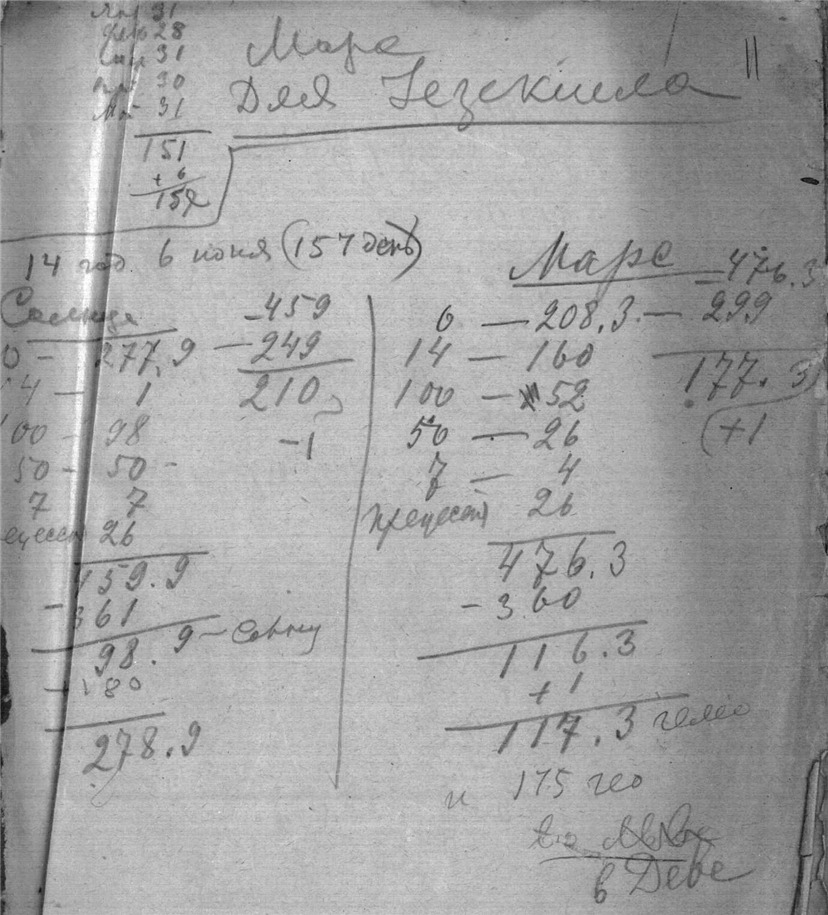 31
28
31
30
31
151
+ 6
157
Марс
Для Иезекиила
11
14 год 6 июня (157 день)
Солнце
0 — 277.9
14 — 1
100 — 98
50 — 50 —
7 7
26
459.9
- 361
98.9 — Солнц
+ 180
278.9
— 459
— 249
210
-1
Марс
0 — 208.3 —
14 — 160
100 — 52
50 — 26
7 — 4
прецессия 26
476.3
- 360
116.3
+ 1
117.3 гелио
и 175 гео
во Льве
в Деве
— 476.3
299
177.3
(+1